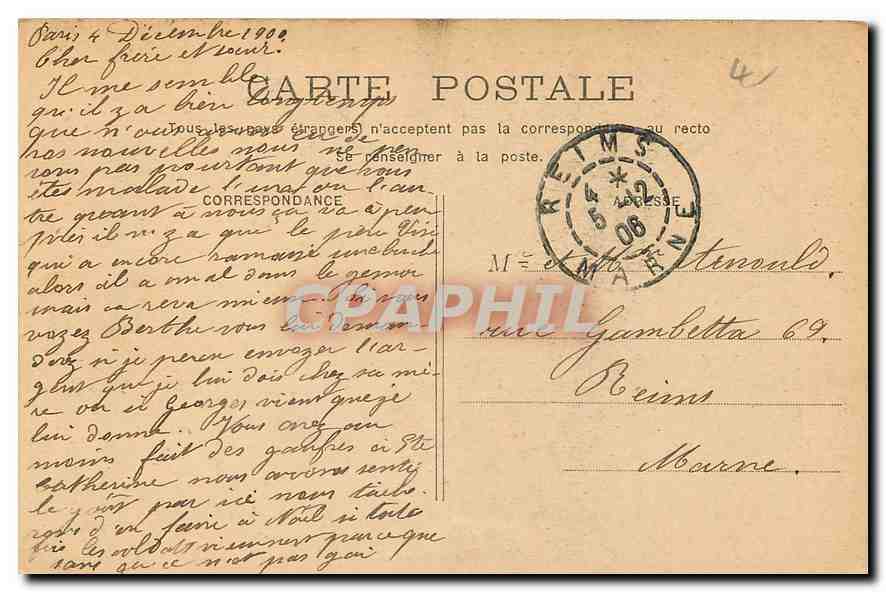 Paris 4 Décembre 190
Cher frère et sœur.
Il me semble
qu'il z a bien longtemps
que n'avons eu de
vos nouvelles nous ne pen
sons pas pourtant que vous
êtes malade l'un ou l'au
tre quant à nous ça va à peu
près il n'z a que le père
qui a encore ramassé une
alors il a mal dans le genou
mais ça sera mieux si vous
vozez Berthe vous lui deman
derez si je peux envozer l'ar
gent que je lui dois chez sa mè
re ou si Georges vient que je
lui donne. Vous avez au
moins fait des gaufres à Ste
Catherine nous avons senti
le goût par ici nous tâche
rons d'en faire à Noël si toute
fois les soldats viennent parce que
sans ça ce n'est pas gai
CARTE POSTALE
4
Tous les pays étrangers n'acceptent pas la correspondance au recto
Se renseigner à la poste.
CORRESPONDANCE
ADRESSE
REIMS
4
5 12
06
MARNE
CPAPHIL
rue Gambetta 69.
Reims
Marne.